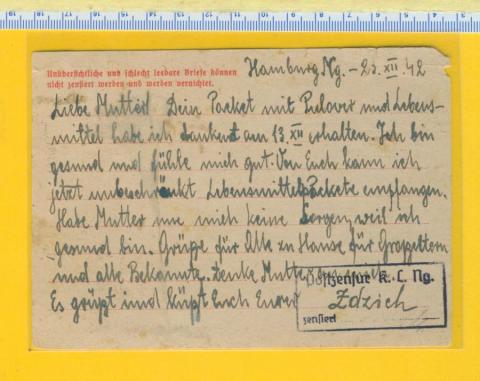 Hamburg Ng. - 23. XII. 42
Unübersichtliche und schlecht lesbare Briefe können
nicht zensiert werden und werden vernichtet.
Liebe Mutter! Dein Packet mit Pulover und Lebens-
mittel habe ich dankend am 13. XII erhalten. Ich bin
gesund und fühle mich gut. Von Euch kann ich
jetzt unbeschränkt Lebensmittelpackete empfangen.
Habe Mutter um mich keine Sorgen, weil ich
gesund bin. Grüße für Alle zu Hause für Großeltern
und alle Bekannte. Denke Mutter
Es grüßt und küßt Euch Euer
Postzensur K. L. Ng.
zensiert